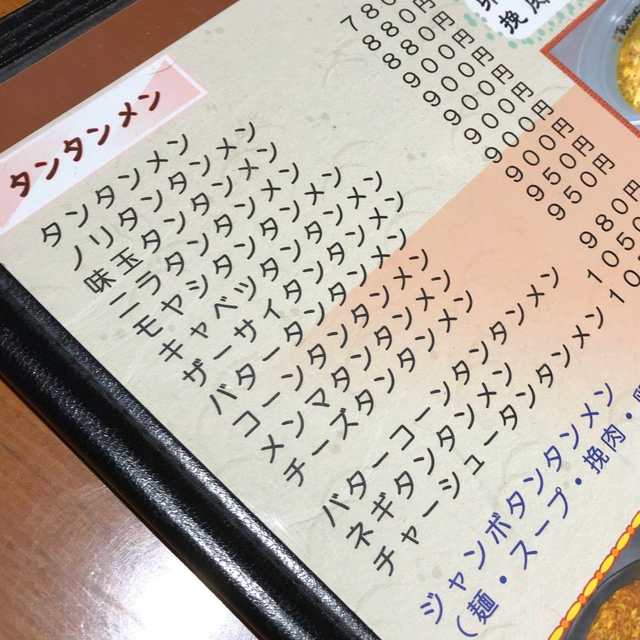 タンタンメン
タンタンメン 780円
ノリタンタンメン 880円
味玉タンタンメン 880円
ニラタンタンメン 900円
モヤシタンタンメン 900円
キャベツタンタンメン 900円
ザーサイタンタンメン 900円
バタータンタンメン 900円
コーンタンタンメン 900円
メンマタンタンメン 950円
チーズタンタンメン 950円
バターコーンタンタンメン 980円
ネギタンタンメン 1050
チャーシュータンタンメン
ジャンボタンタンメン
(麺・スープ・挽肉・